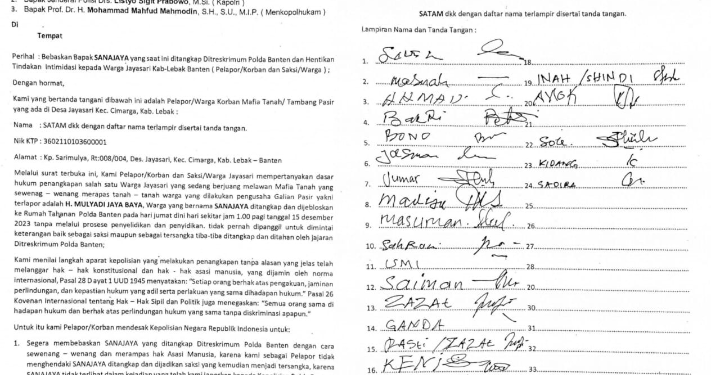 3. Bapak Prof. Dr. H. Mohammad Mahfud Mahmodin, S.H., S.U., M.I.P. ( Menkopolhukam )
Di
Tempat
Perihal : Bebaskan Bapak SANAJAYA yang saat ini ditangkap Ditreskrimum Polda Banten dan Hentikan
Tindakan Intimidasi kepada Warga Jayasari Kab-Lebak Banten ( Pelapor/Korban dan Saksi/Warga ) ;
Dengan hormat,
Kami yang bertanda tangani dibawah ini adalah Pelapor/Warga Korban Mafia Tanah/ Tambang Pasir
yang ada di Desa Jayasari Kec. Cimarga, Kab. Lebak :
Nama : SATAM dkk dengan daftar nama terlampir disertai tanda tangan.
Nik KTP : 3602110103600001
Alamat : Kp. Sarimulya, Rt:008/004, Des. Jayasari, Kec. Cimarga, Kab. Lebak – Banten
Melalui surat terbuka ini, Kami Pelapor/Korban dan Saksi/Warga Jayasari mempertanyakan dasar
hukum penangkapan salah satu Warga Jayasari yang sedang berjuang melawan Mafia Tanah yang
sewenang – wenang merapas tanah – tanah warga yang dilakukan pengusaha Galian Pasir yakni
terlapor adalah H. MULYADI JAYA BAYA, Warga yang bernama SANAJAYA ditangkap dan dijebloskan
ke Rumah Tahanan Polda Banten pada hari jumat dini hari sekitar jam 1.00 pagi tanggal 15 desember
2023 tanpa melalui prosese penyelidikan dan penyidikan. tidak pernah dipanggil untuk dimintai
keterangan baik sebagai saksi maupun sebagai tersangka tiba-tiba ditangkap dan ditahan oleh jajaran
Ditreskrimum Polda Banten;
Kami menilai langkah aparat kepolisian yang melakukan penangkapan tanpa alasan yang jelas telah
melanggar hak – hak konstitusional dan hak - hak asasi manusia, yang dijamin oleh norma
internasional, Pasal 28 Dayat 1 UUD 1945 menyatakan: "Setiap orang berhak atas pengakuan, jaminan
perlindungan, dan kepastian hukum yang adil serta perlakuan yang sama dihadapan hukum." Pasal 26
Kovenan Internasional tentang Hak – Hak Sipil dan Politik juga menegaskan: "Semua orang sama di
hadapan hukum dan berhak atas perlindungan hukum yang sama tanpa diskriminasi apapun."
Untuk itu kami Pelapor/Korban mendesak Kepolisian Negara Republik Indonesia untuk:
1. Segera membebaskan SANAJAYA yang ditangkap Ditreskrimum Polda Banten dengan cara
sewenang – wenang dan merampas hak Asasi Manusia, karena kami sebagai Pelapor tidak
menghendaki SANAJAYA ditangkap dan dijadikan saksi yang kemudian menjadi tersangka, karena
SATAM dkk dengan daftar nama terlampir disertai tanda tangan.
Lampiran Nama dan Tanda Tangan :
1.
18.
2.
19. INAH /SHINDI
3. AHMAD
20.
4.
21.
5. BONO
22.
6. JASMAN
23. KIDANG
7. Jumar
24. SADIRA
8.
9.
26.
10. SAHRONI
27.
11. USMI
12. Saiman
13. ZAZAE
30.
14. GANDA
31.
15. RASTI /ZAZAE
32.
16.
33.